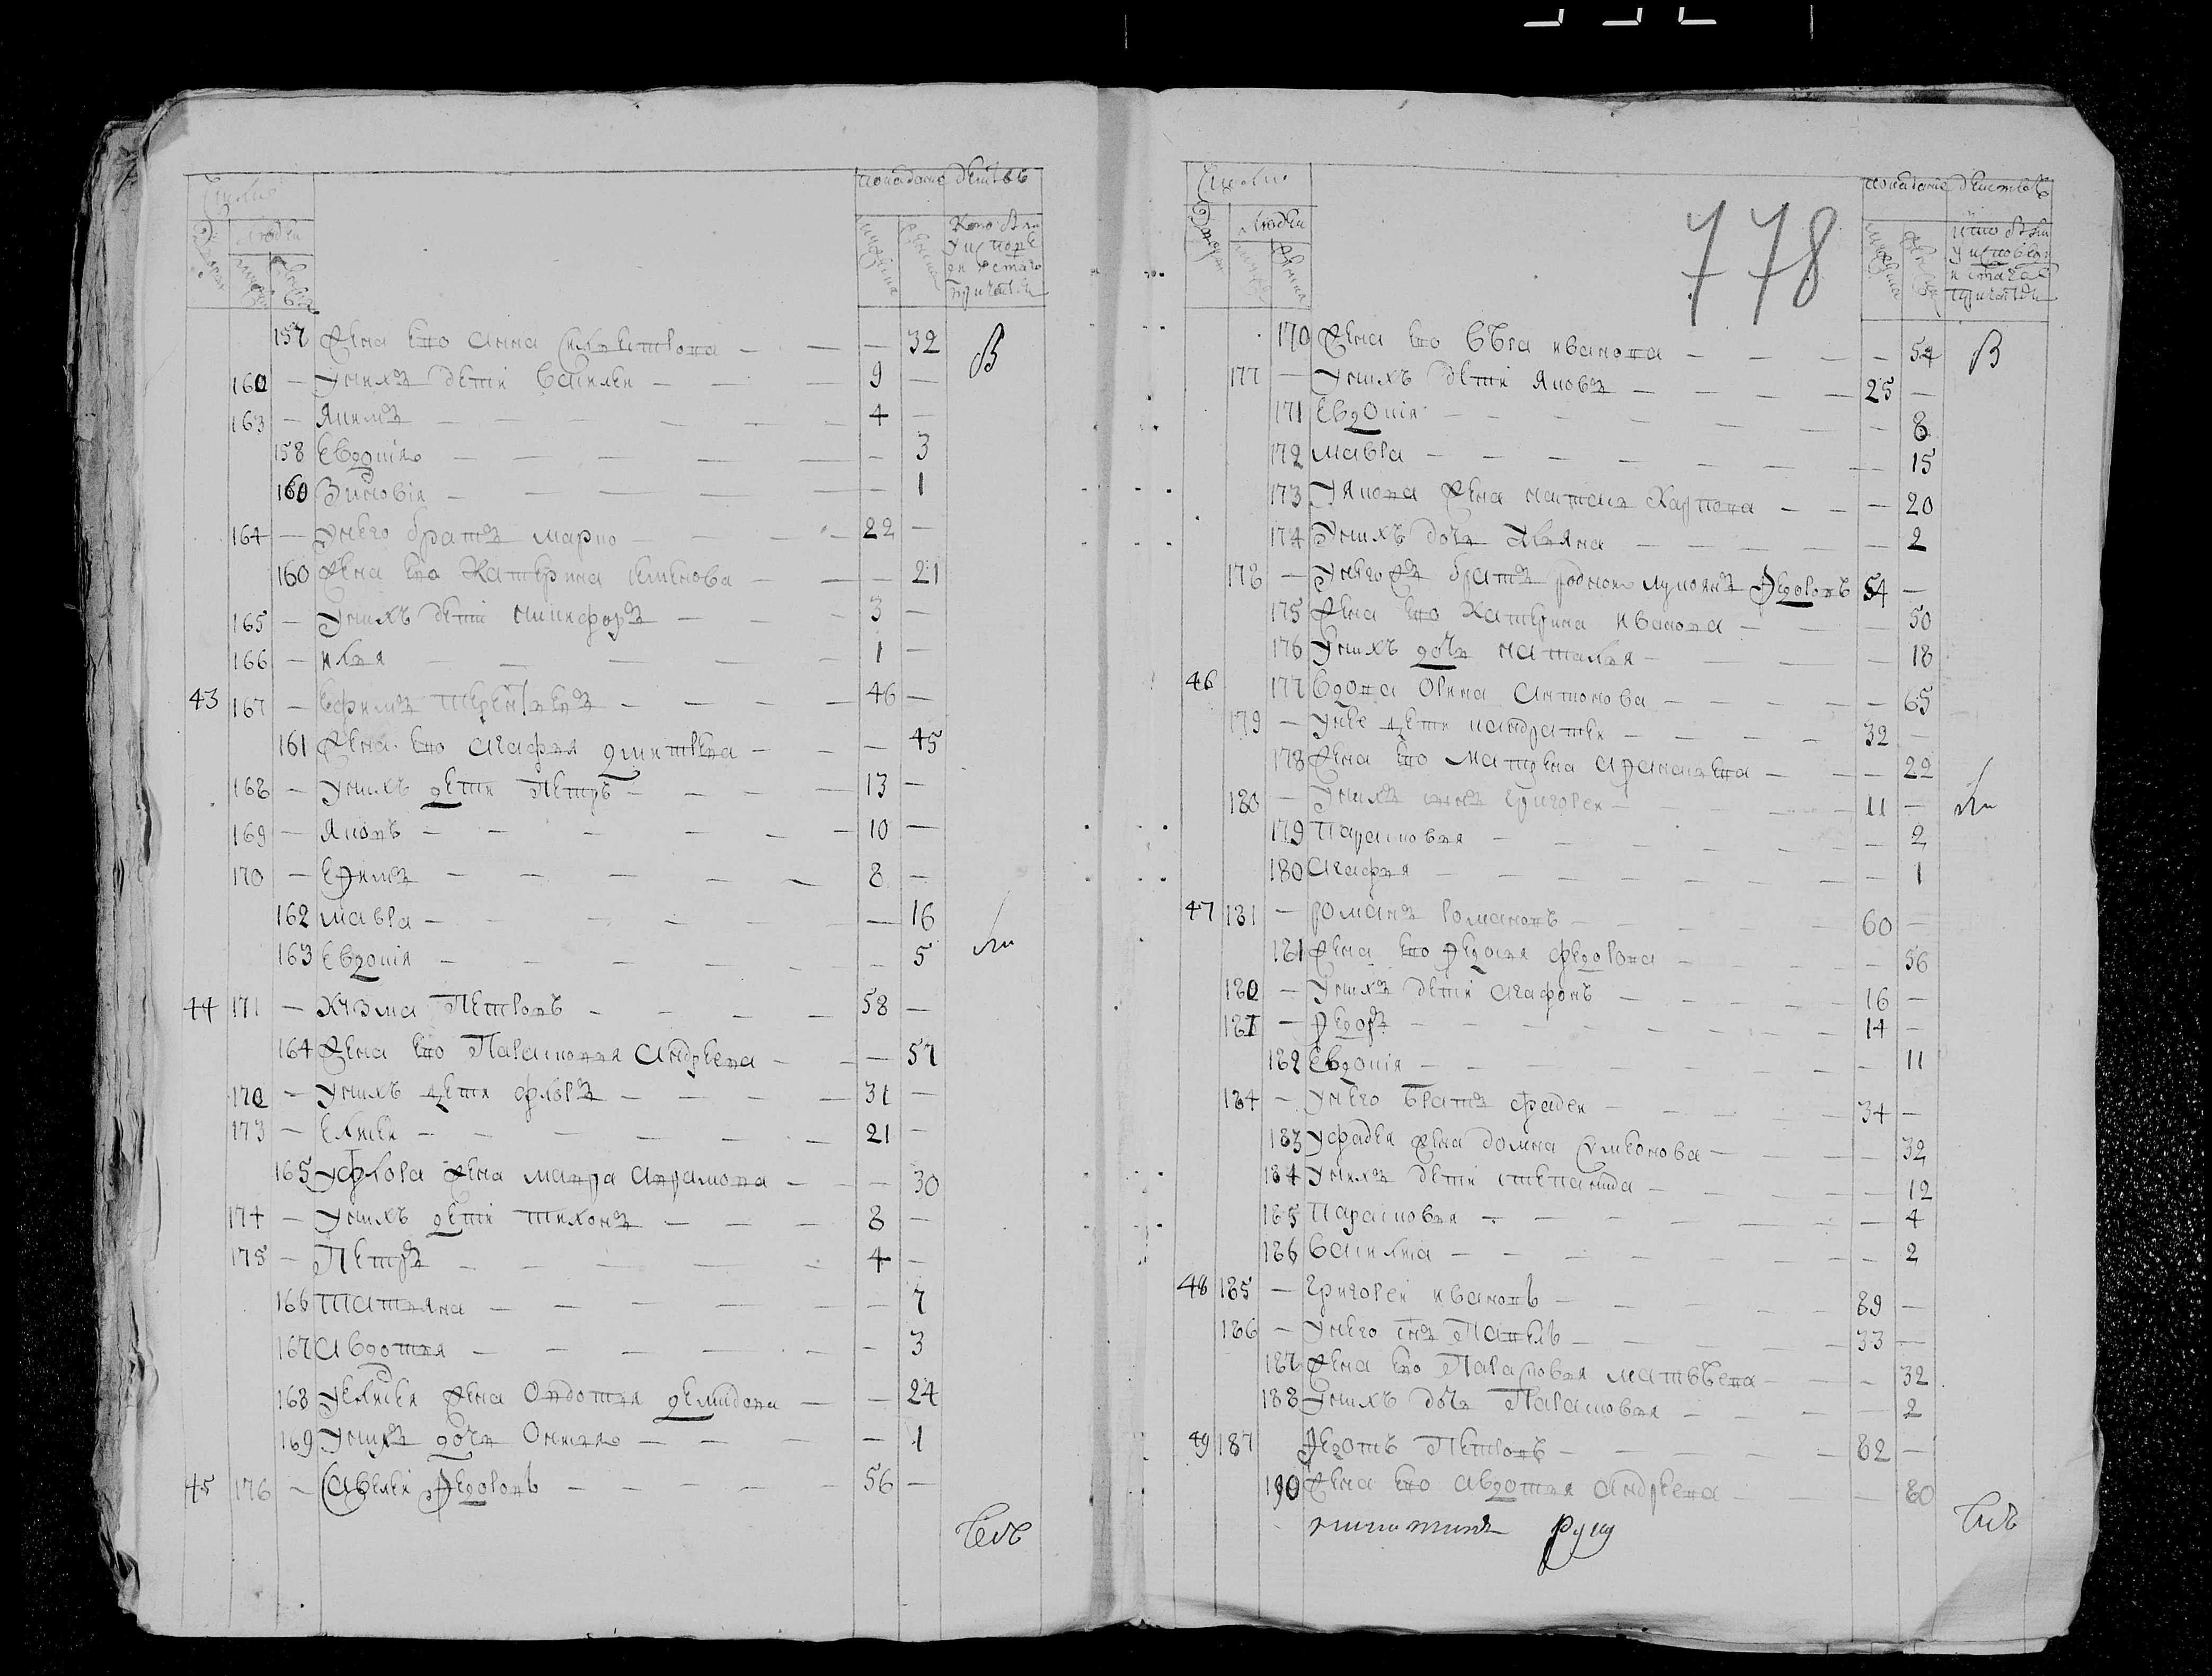 Число
показание
дворов
людей
157 Жена ево Анна Силвестрова — — — 32 В
160 — У них дети Василей — — — 9 —
163 — Яким — — — 4 —
158 Евдокия — — — 3
160 Зиновия — — — 1
164 — У него брат Марко — — — 22 —
160 Жена ево Катерина Семенова — — — 21
165 — У них дети Никифор — — — 3 —
166 — Илья — — — 1 —
43 167 — Ефим Терентьев — — — 46 —
161 Жена ево Агафья Дмитева — — — 45
168 — У них дети Петръ — — — 13 —
169 — Яковъ — — — 10 —
170 — Ефим — — — 8 —
162 Мавра — — — 16
163 Евдокия — — — 5
44 171 — Кузма Петровъ — — — 58 —
164 Жена ево Парасковья Андреева — — — 57
172 — У нихъ дети Флор — — — 31 —
173 — Елисей — — — 21 —
165 У Флора жена Мавра Аврамова — — — 30
174 — У нихъ дети Тихон — — — 8 —
175 — Петр — — — 4 —
166 Татьяна — — — 7
167 Авдотья — — — 3
168 У Елисея жена Овдотья Демидова — — — 24
169 У них дочь — — — 1
45 176 — Савелей Федоровъ — — — 56 —
778
Число
показание
людей
170 Жена ево Вера Иванова — — — 54 В
177 — У нихъ дети Яков — — — 25 —
171 Евдокия — — — 8
172 Мавра — — — 15
173 У Якова жена Наталья Карпова — — — 20
174 У нихъ дочь Ульяна — — — 2
178 — У него ж брат родной Лукоян Федоровъ 54 —
175 Жена ево Катерина Иванова — — — 50
176 У нихъ дочь Наталья — — — 18
46 177 Вдова Орина Антонова — — — 65
179 — У нее дети Кандратей — — — 32 —
178 Жена ево Матрена Афанасьева — — — 22
180 — У них сын Григорей — — — 11 —
179 Парасковья — — — 2
180 Агафья — — — 1
47 181 — Роман Романовъ — — — 60 —
181 Жена ево Федосья Федорова — — — 56
182 — У них дети Агафонъ — — — 16 —
187 — Федор — — — 14 —
182 Евдокия — — — 11
184 — У него брат Фадей — — — 34 —
183 У Фадея жена Домна Симонова — — — 32
184 У них дети Степанида — — — 12
185 Парасковья — — — 4
186 Василиса — — — 2
48 185 — Григорей Ивановъ — — — 89 —
186 — У него сын Павелъ — — — 33 —
187 Жена ево Парасковья Матвеева — — — 32
188 У нихъ дочь Парасковья — — — 2
49 187 Федотъ Петровъ — — — 82 —
190 Жена ево Авдотья Андреева — — — 80
руку